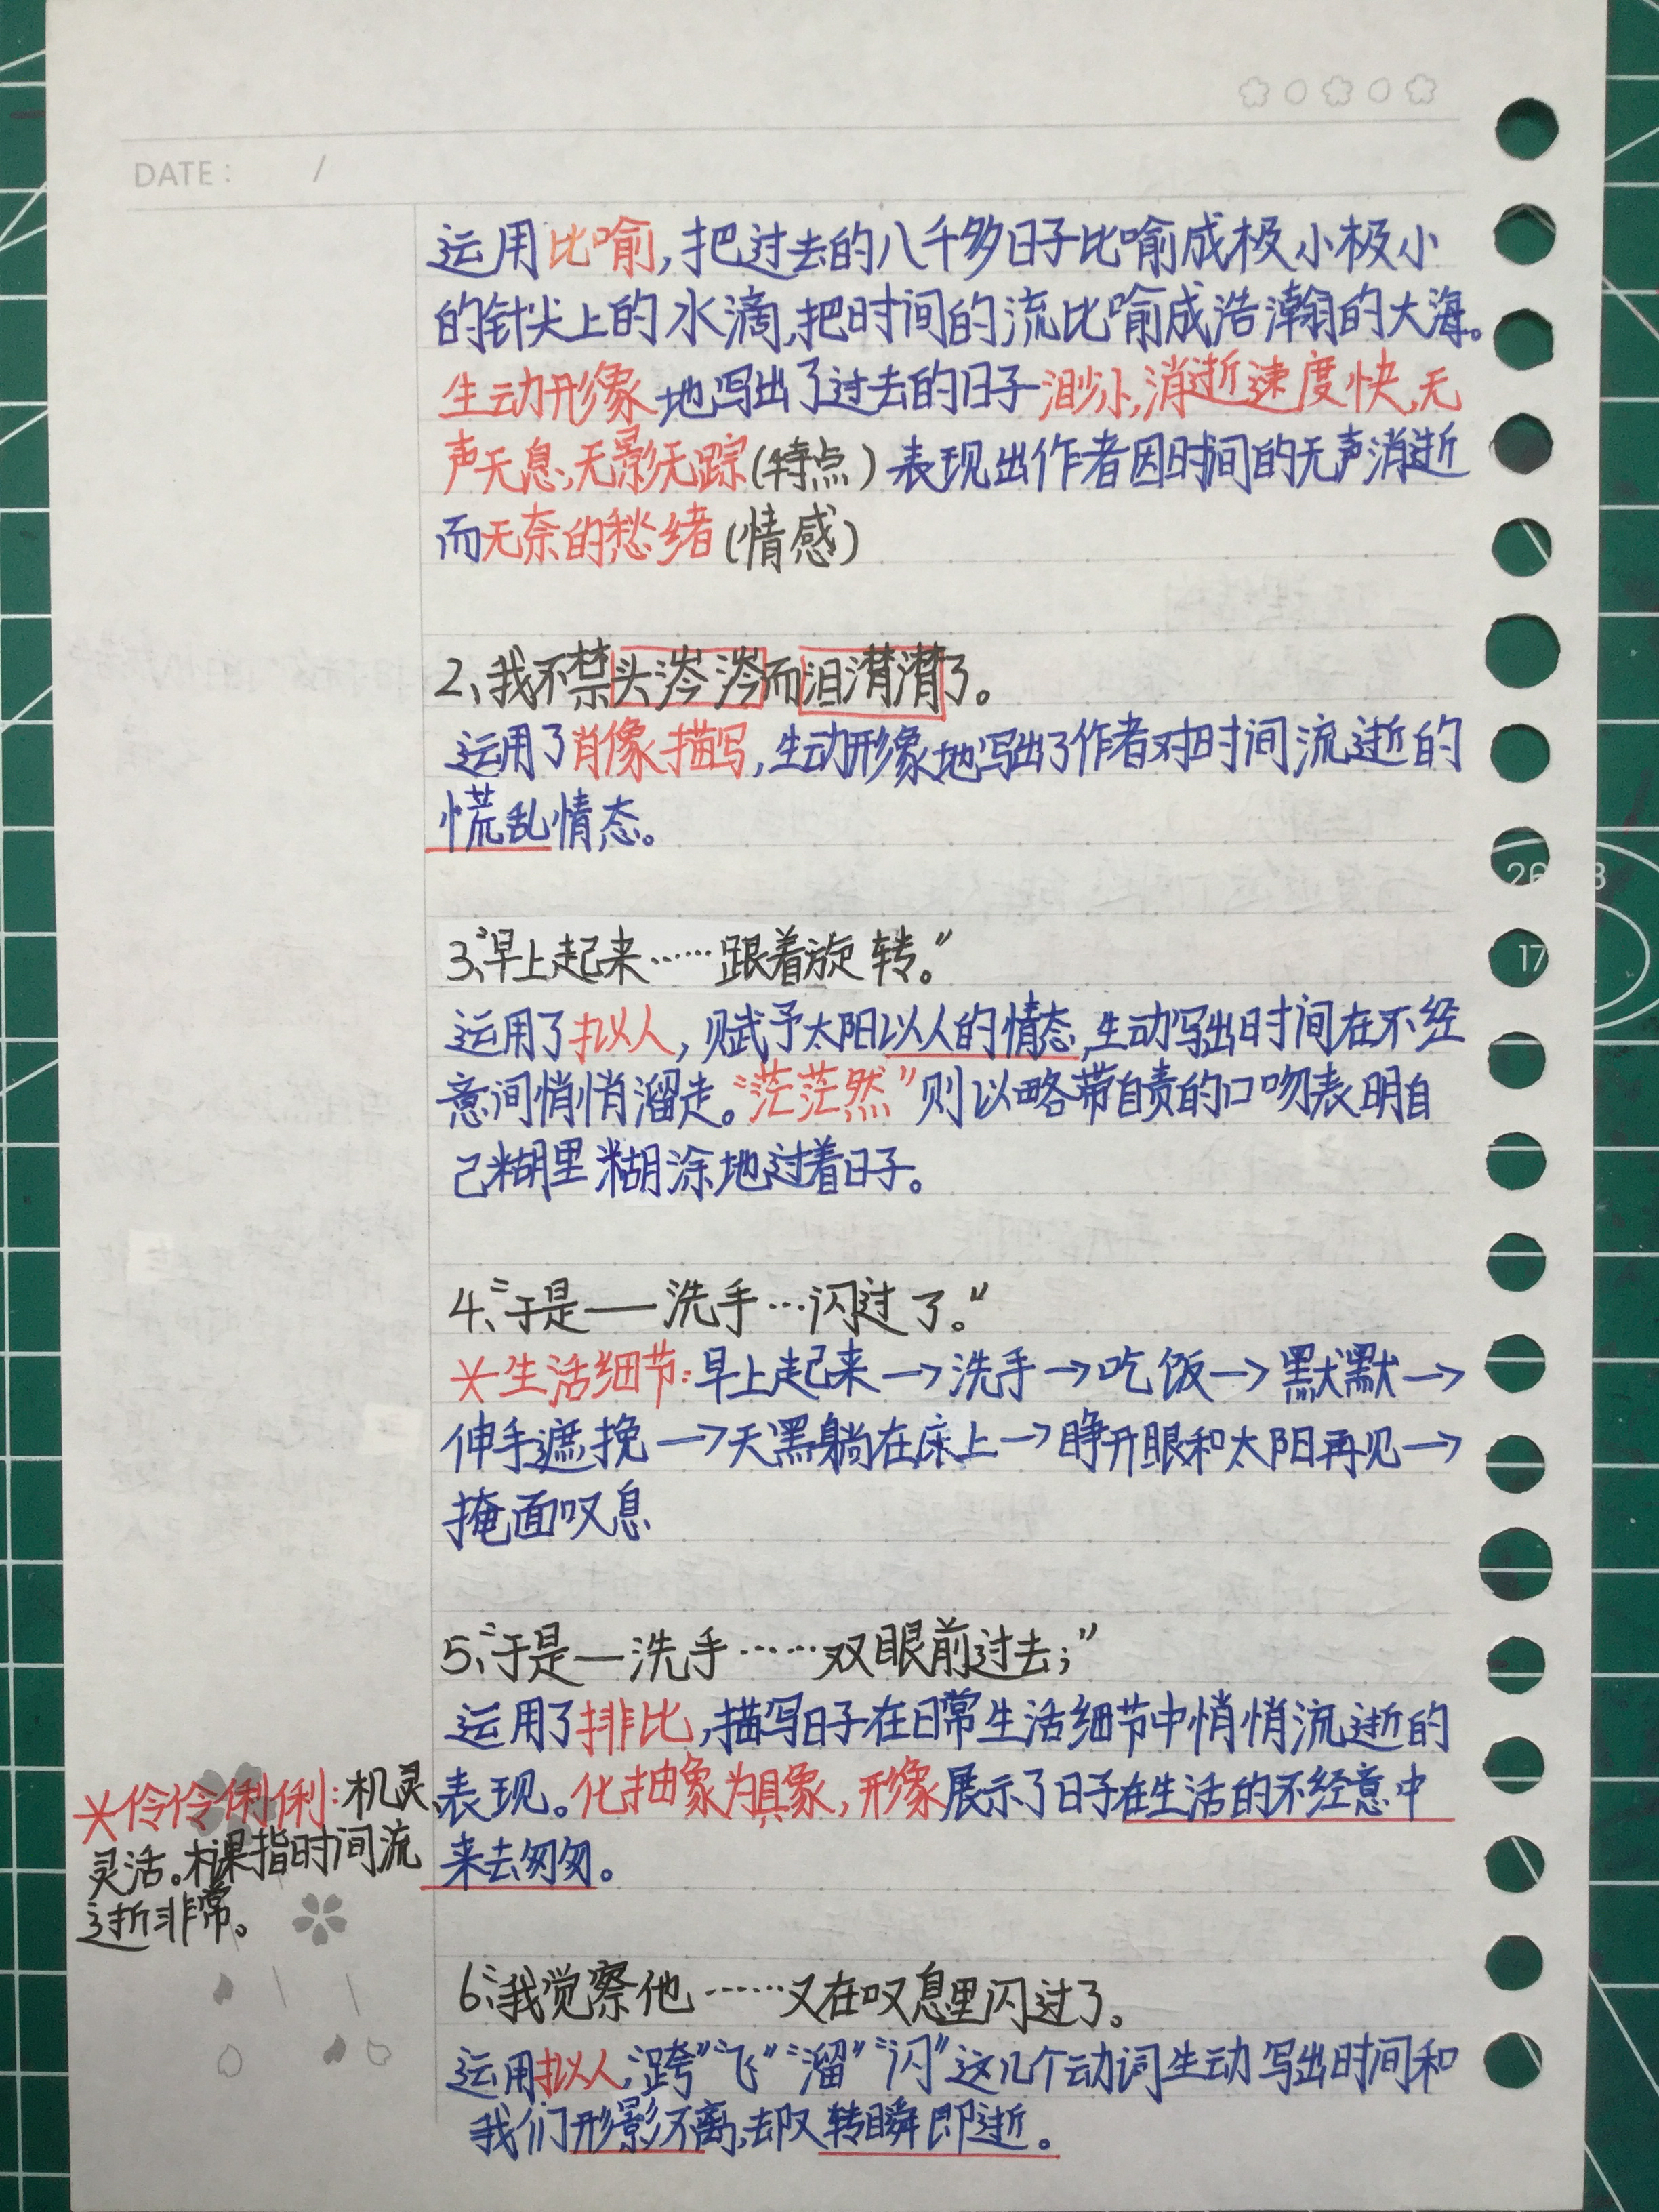 DATE: /
运用比喻,把过去的八千多日子比喻成极小极小
的针尖上的水滴,把时间的流比喻成浩瀚的大海。
生动形象地写出了过去的日子渺小,消逝速度快,无
声无息,无影无踪(特点)表现出作者因时间的无声消逝
而无奈的愁绪(情感)
2、我不禁头涔涔而泪潸潸了。
运用了肖像描写,生动形象地写出了作者对时间流逝的
慌乱情态。
3、“早上起来……跟着旋转。”
运用了拟人,赋予太阳以人的情态,生动写出时间在不经
意间悄悄溜走。“茫茫然”则以略带自责的口吻表明自
己糊里糊涂地过着日子。
4、“于是——洗手…闪过了。”
*生活细节:早上起来→洗手→吃饭→默默→
伸手遮挽→天黑躺在床上→睁开眼和太阳再见→
掩面叹息
5、“于是—洗手……双眼前过去;”
运用了排比,描写日子在日常生活细节中悄悄流逝的
表现。化抽象为具象,形像展示了日子在生活的不经意中
来去匆匆。
*伶伶俐俐:机灵、
灵活。本课指时间流
逝非常。
6、“我觉察他……又在叹息里闪过了。
运用拟人,“跨”“飞”“溜”“闪”这几个动词生动写出时间和
我们形影不离,却又转瞬即逝。
26
8
17